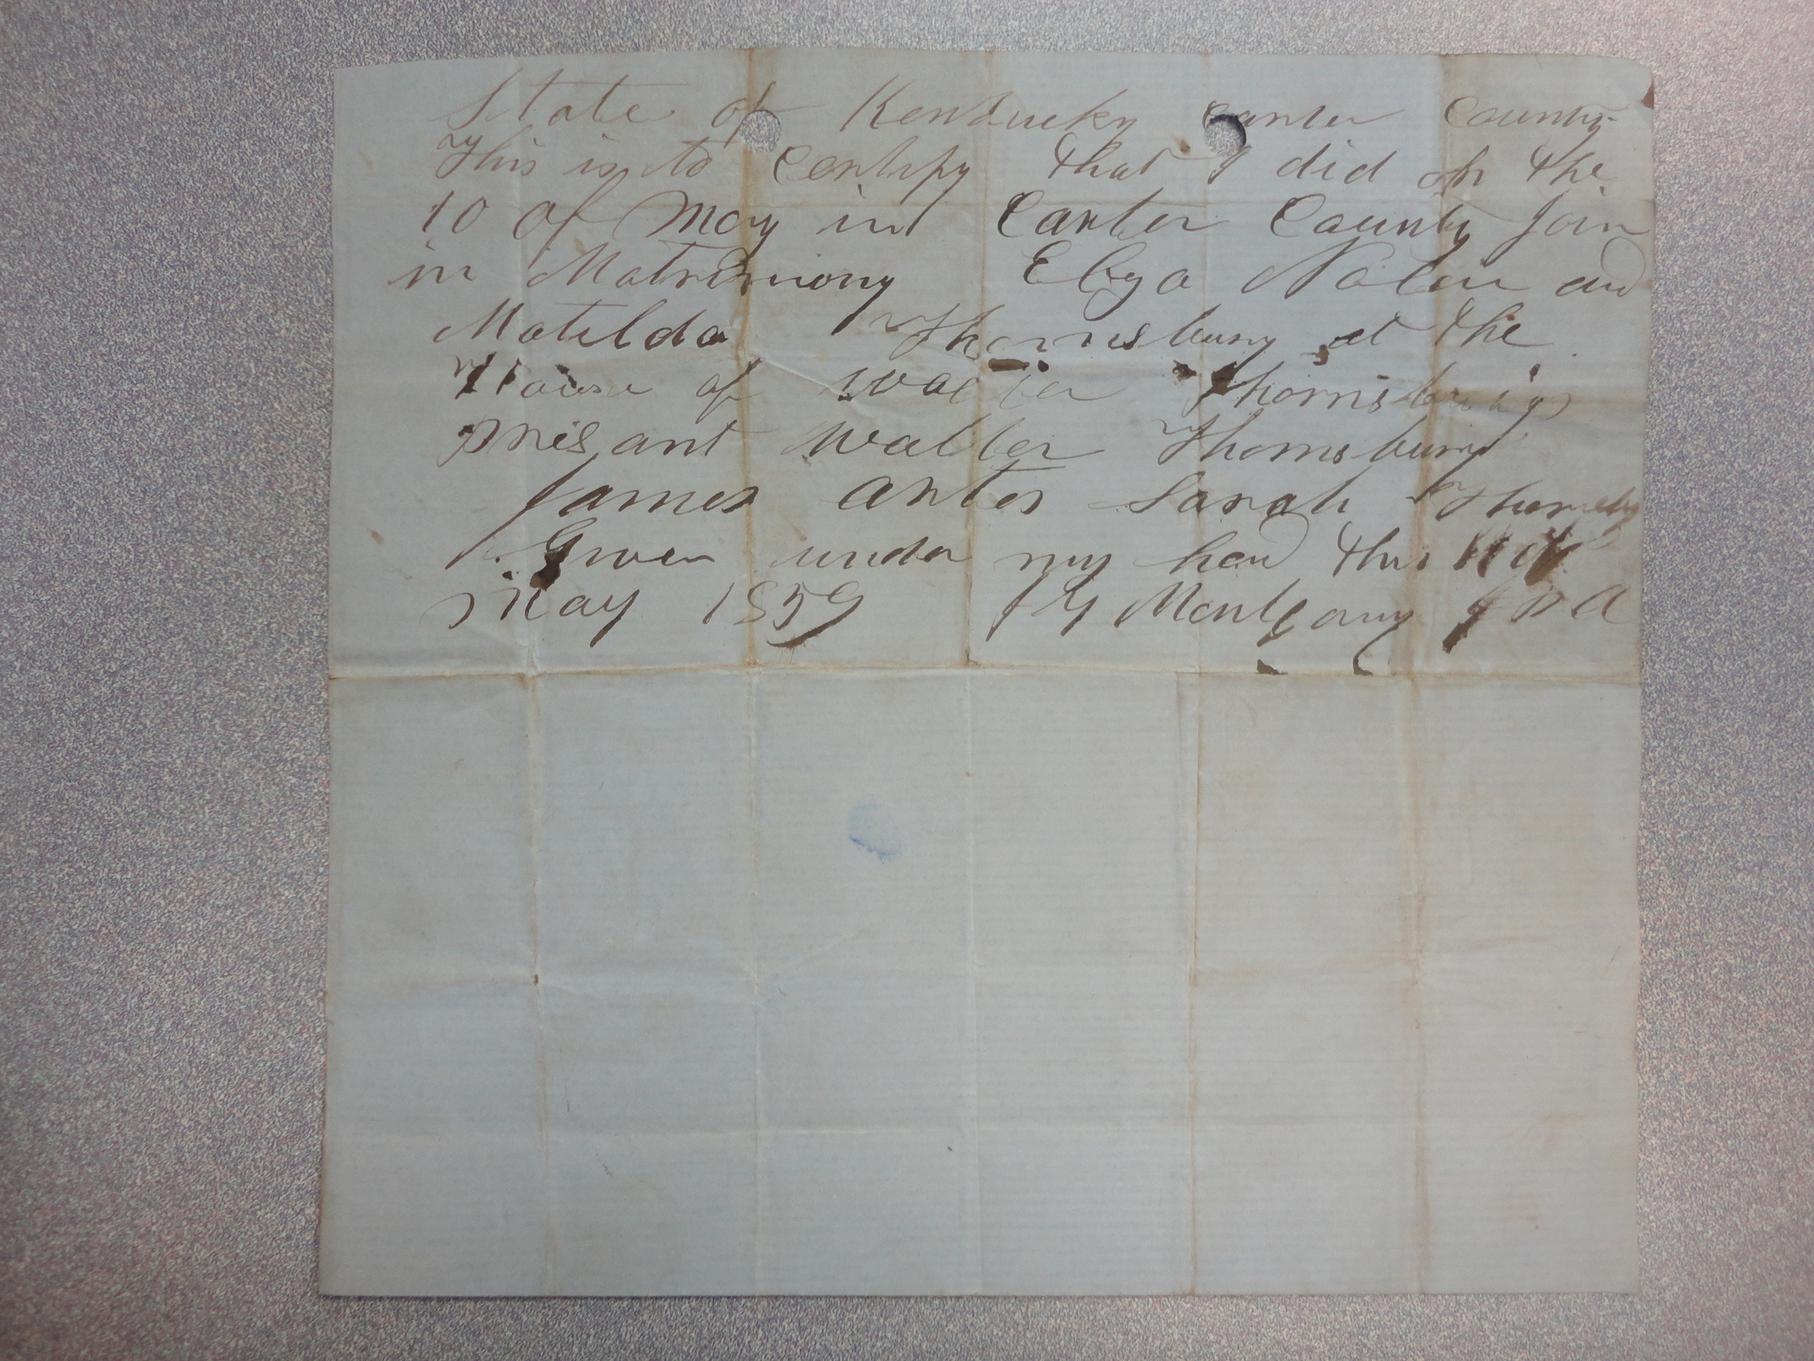 State of Kentucky Carter County
This is to Certify that I did on the
10 of May in Carter County Join
in Matrimony Elza Nolen and
Matilda Thornsbury at the
House of Walter Thornsburys
presant Walter Thornsbury
James Sarah
Given under my hand this 11 of
May 1859